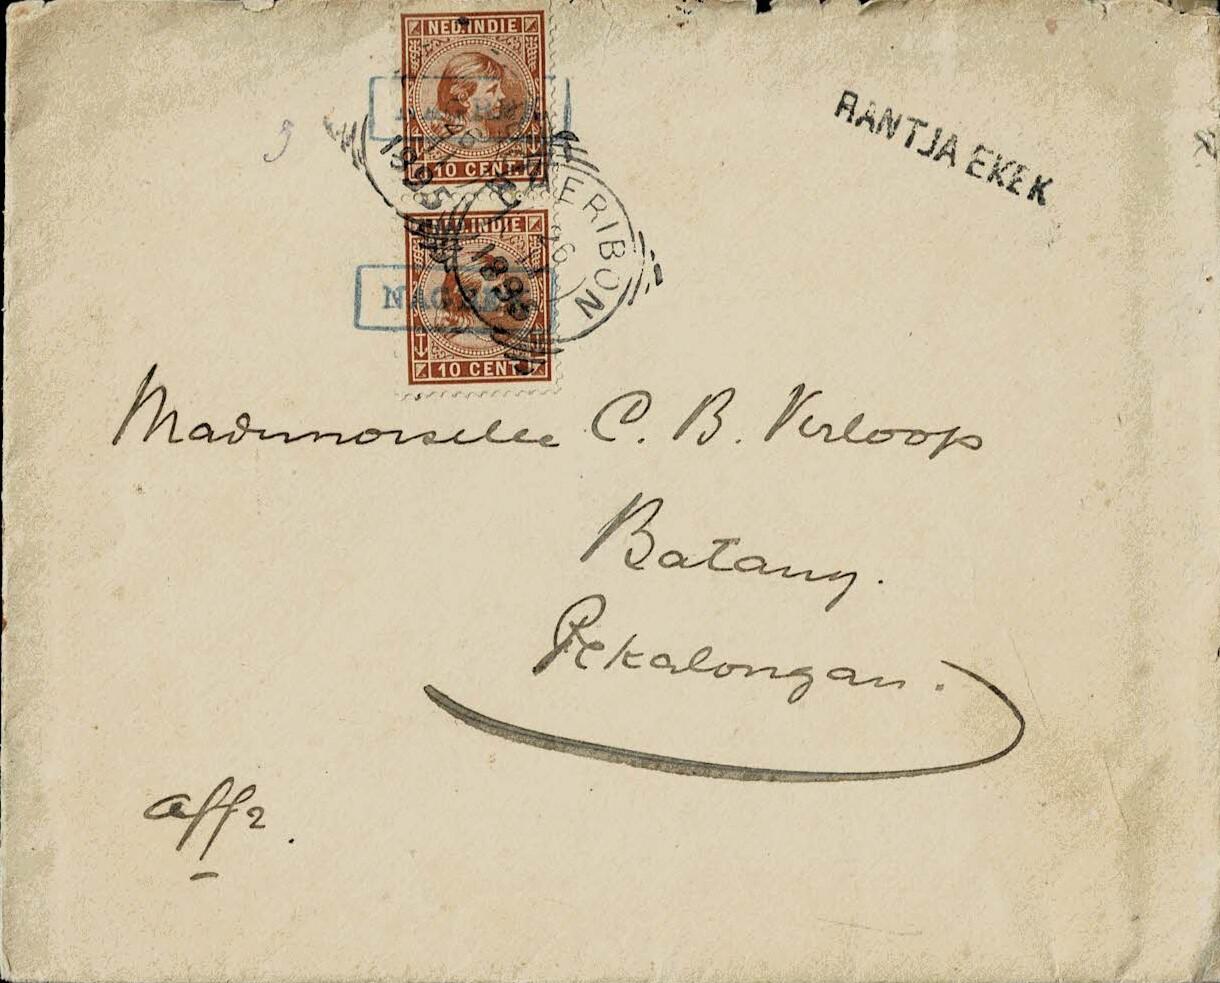 NED. INDIE
10 CENT
RANTJA EKEK
1895
NED. INDIE
NAGREK
CHERIBON
26
11
1895
10 CENT
Mademoiselle C. B. Verloop
Batang.
Pekalongan.
affr.